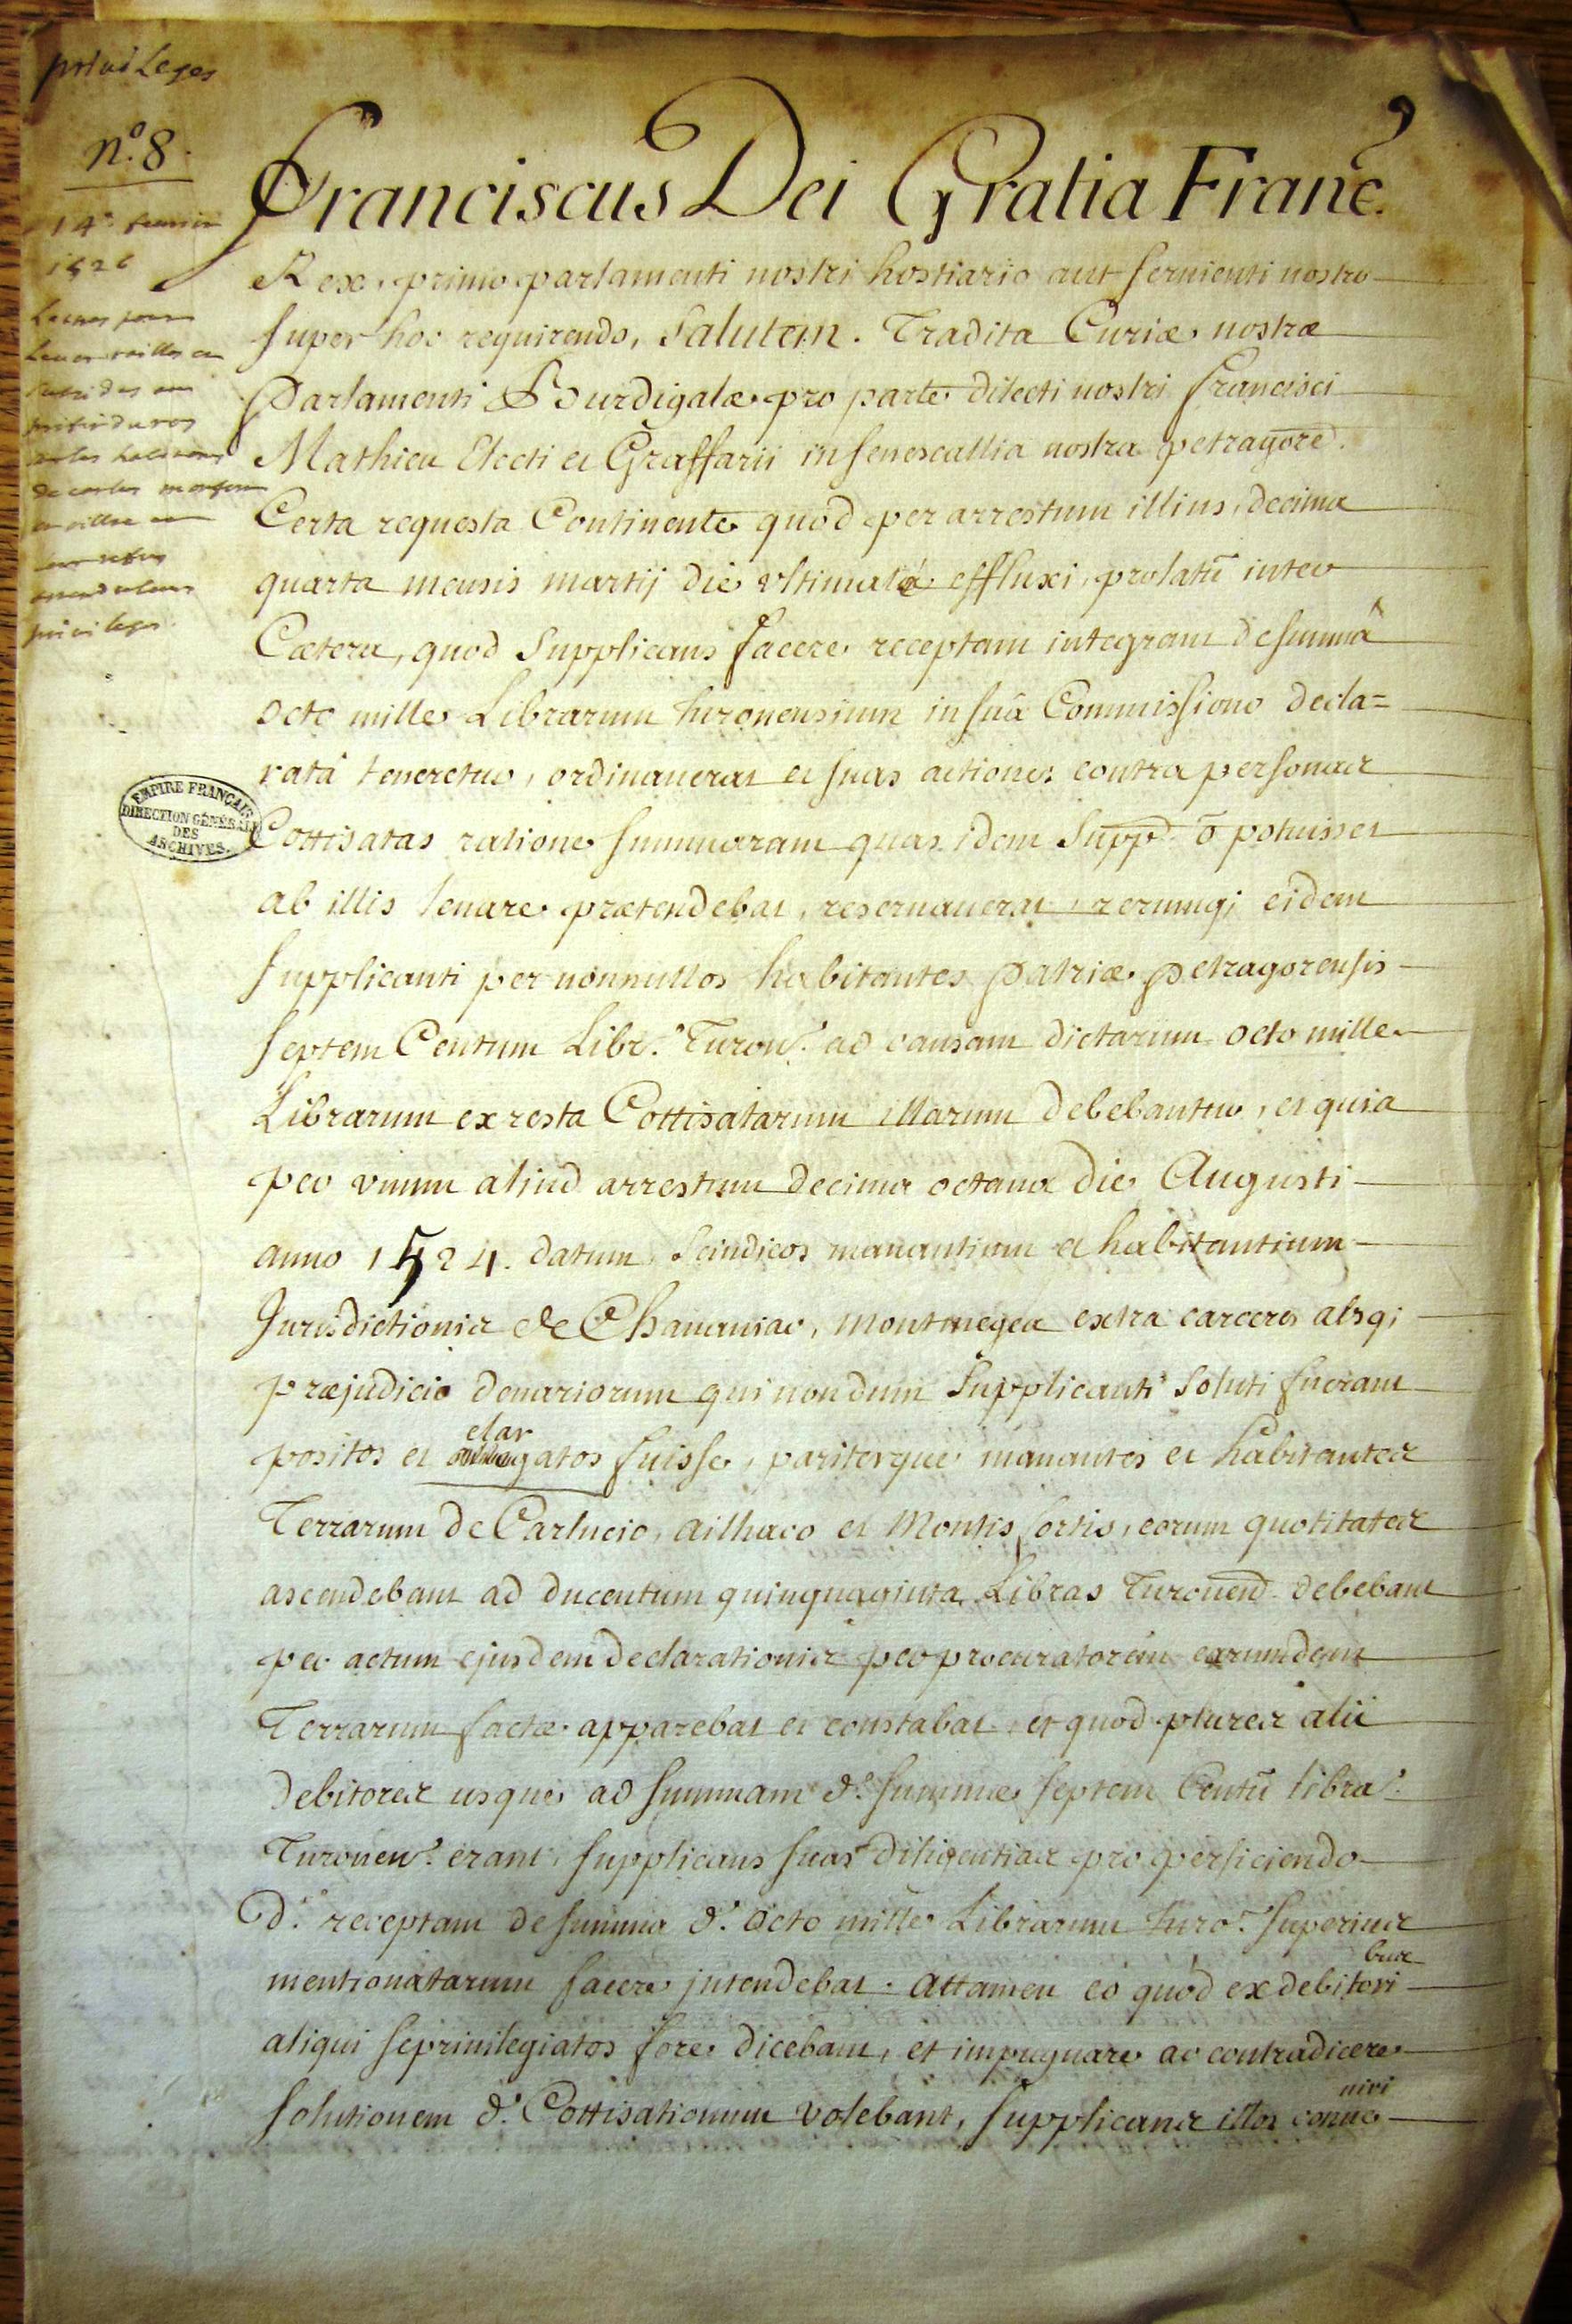 privileges
nº. 8.
14e. fevrier
1526
privileges
Franciscus Dei Gratia Franc.
Rex, primo parlamenti nostri hostiario aut servienti nostro
super hoc requirendo, Salutem. Tradita Curiæ nostræ
Parlamenti Burdigalæ pro parte dilecti nostri Francisci
Mathieu Electi et Graffarii in senescallia nostra petragore.
Certa requesta Continente quòd per arrestum illius, decima
quarta mensis martij die ultimatè effluxi, prolatū inter
Cætera, quod Supplicans facere receptam integram de summâ
octo mille Librarum turonensium in suâ Commissione decla=
ratâ teneretur, ordinaverat et suas actiones contra personas
Cottisatas ratione summarum quas idem Suppd. ō potuisset
ab illis levare prætendebat, reservaverat, rerumqj eidem
supplicanti per nonnullos habitantes patriæ petragorensis
septem Centum Libr. Turon. ad causam dictarum octo mille
Librarum ex resta Cottisatarum illarum debebantur, et quia
per unum aliud arrestum decima octava die Augusti
anno 1524. datum, Scindicos manantium et habitantium
Jurisdictionis de Chavaniac, montmegea extra carceres absqj
præjudicio denariorum qui nondum Supplicanti soluti fuerant
elar
positos et gatos fuisse, pariterque manantes et habitantes
Terrarum de Carlucio, ailhaco et Montis fortis, eorum quotitates
ascendebant ad ducentum quinquaginta Libras Turonend. debebant
per actum ejusdem declarationis per procuratorem earumdem
Terrarum factæ apparebat et constabat, et quod plures alii
debitores usque ad summam d. summæ septem Centū libra.
Turonen. erant, supplicans suas diligentias pro perficiendo
d. receptam de summa d. octo mille Librarum turo. superius
mentionatarum facere jntendebat. attamen eò quòd ex debitori
bus
aliqui se privilegiatos fore dicebant, et impugnare ac contradicere
solutionem d. Cottisationum volebant, supplicans illos conve
niri
EMPIRE FRANÇAIS
DIRECTION GÉNÉRALE
DES
ARCHIVES.